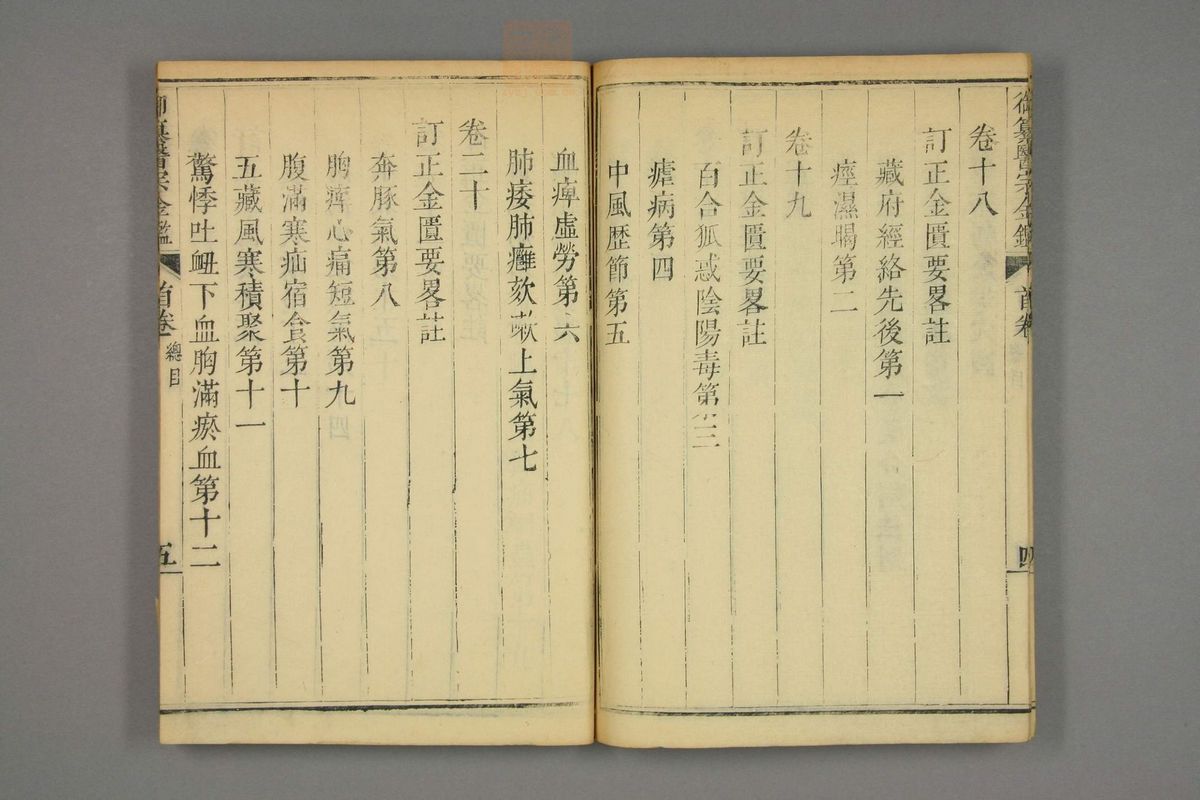 御纂醫宗金鑑 首卷 四
卷十八
訂正金匱要畧註
藏府經絡先後第一
痙濕暍第二
卷十九
訂正金匱要畧註
百合狐惑陰陽毒第三
瘧病第四
中風歷節第五
血痺虛勞第六
肺痿肺癰欬嗽上氣第七
卷二十
訂正金匱要畧註
奔豚氣第八
胸痺心痛短氣第九
腹滿寒疝宿食第十
五藏風寒積聚第十一
驚悸吐衂下血胸滿瘀血第十二
御纂醫宗金鑑 首卷 總目 五